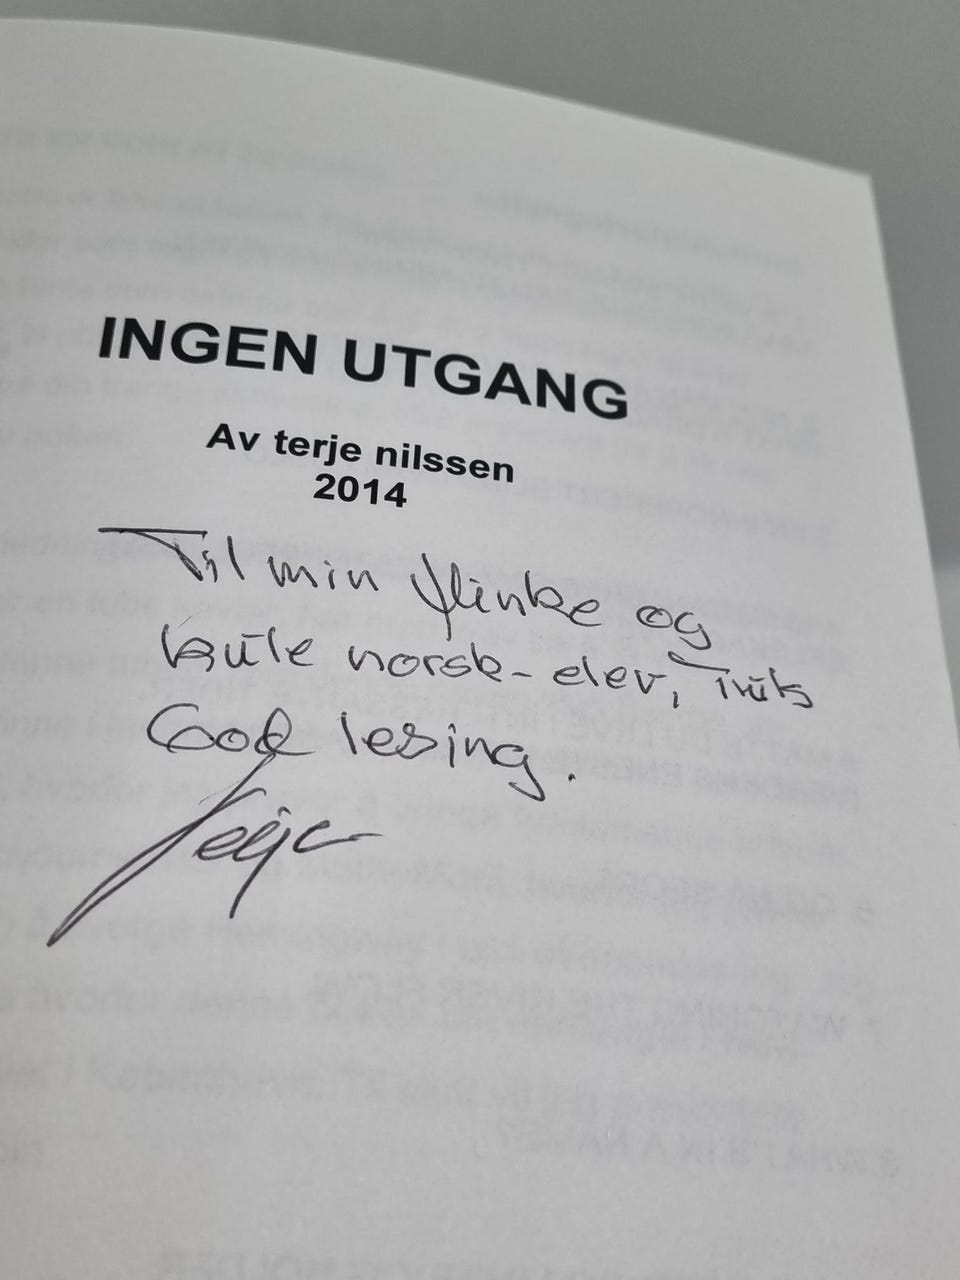 INGEN UTGANG
Av terje nilssen
2014
Til min flinke og
kule norsk-elev,
God lesing.
Terje